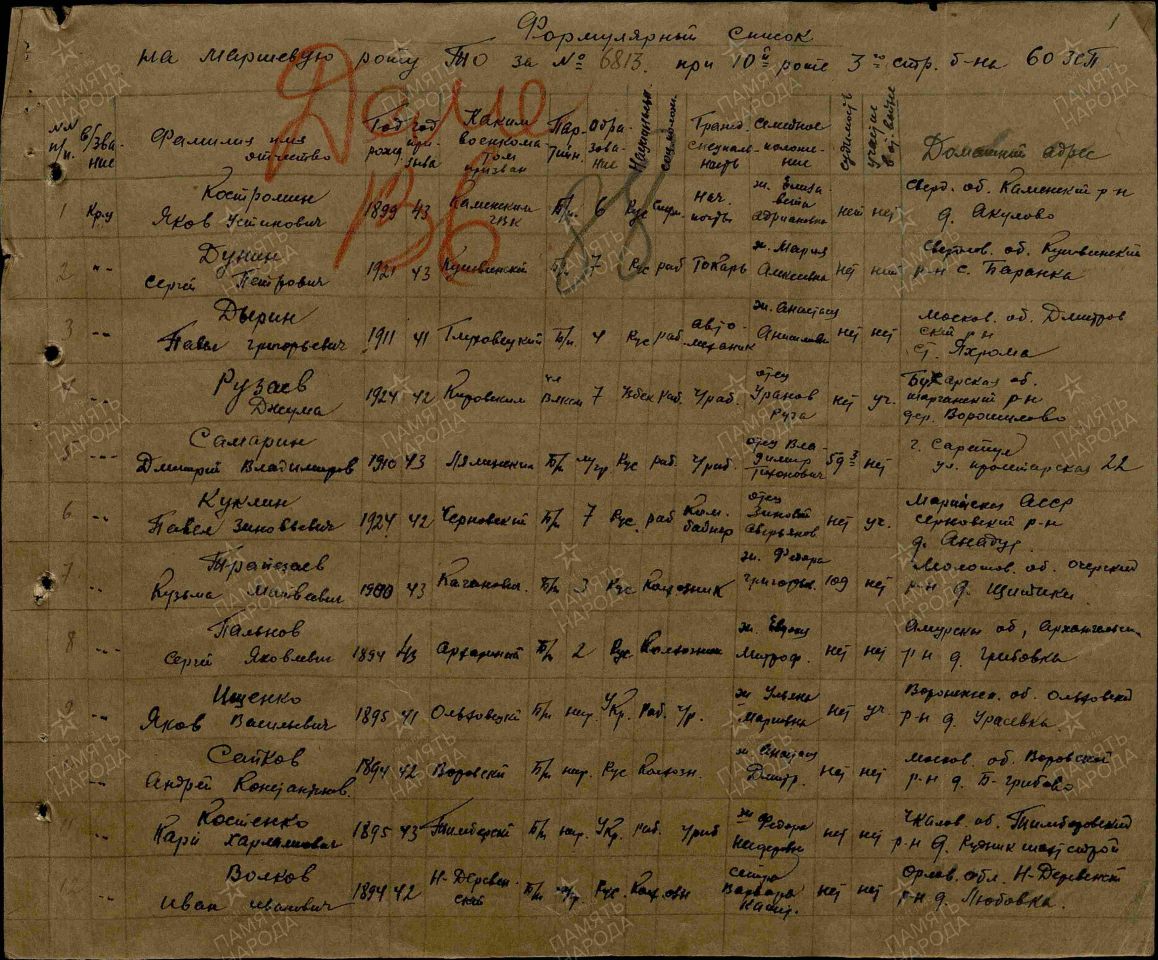 1
Формулярный список
на маршевую роту ТО за № 6813. при 10й роте 3го стр. б-на 60 ЗСП
Дело
136
85
№№ п/п. в/звание Фамилия имя отчество Год рожд. год призыва Каким военкоматом призван Партийн. Образование Национальн. соц. полож. Гражд. специальность Семейное положение судимость участие в от. войне Домашний адрес
Костромин ж. Елиза- Сверд. об. Каменский р-н
1 Кр-ц Яков Устинович 1899 43 Каменским ГВК Б/п. 6 Рус Служ. нач. вета Адриановна нет нет д. Акулово
Дунин ж. Мария Свердлов. об. Кушвинский
2 -"- Сергей Петрович 1921 43 Кушвинский Б/п. 7 Рус раб Токарь Алексеевна нет нет р-н с. Баранка
Дырин ж. Анастас Москов. об. Дмитров
3 -"- Павел Григорьевич 1911 41 Б/п. 4 Рус раб. авто-механик нет нет ский р-н
ст. Яхрома
Рузаев чл отец Бухарская об.
-"- Джума 1924 42 Кировским ВЛКСМ 7 Узбек раб. ч/раб. Уранов Руза нет уч. р-н
дер. Ворошилово
Самарин отец Вла- г. Сарапул
5 -"- Дмитрий Владимиров 1910 43 Б/п н/гр. Рус раб. ч/раб. димир Тихонович 59 3 нет ул. пролетарская 22
Куклин отец Марийская АССР
6 -"- Павел Зиновьевич 1924 42 Черновский Б/п 7 Рус. раб Ком. байнер Зиновий Аверьянов нет уч. р-н
д.
Трапезаев ж. Федора Молотов. об. Очерский
7 -"- Кузьма Матвеевич 1900 43 Каганович. Б/п 3 Рус Колхозник Григорьев. 109 нет р-н д. Щипики
Пальнов ж. Амурская об,
8 -"- Сергей Яковлевич 1894 43 Б/п 2 Рус. Колхозник Митроф. нет нет р-н д. Грибовка
Ищенко ж Ульяна Воронежск. об. Ольховский
9 -"- Яков Васильевич 1895 41 Ольховецкий Б/п нег. Укр. раб. ч/р. нет уч. р-н д. Урасевка.
Сайков ж. Анастас Москов. об. Воровской
-"- Андрей Константинов. 1894 42 Воровский Б/п нег. Рус Колхозн. Дмитр. нет нет р-н д. Б-Грибово
Костенко ж Федора Чкалов. об.
11 -"- Харлампович 1895 43 Б/п нег. Укр. раб. ч/раб нет нет р-н д. Рудник
Волков сестра Орлов. обл. Н-Деревенск
-"- Иван Иванович 1894 42 Н-Деревен- ский Б/п н/гр. Рус. Колх. Варвара нет нет р-н д. Любовка.
ПАМЯТЬ НАРОДА